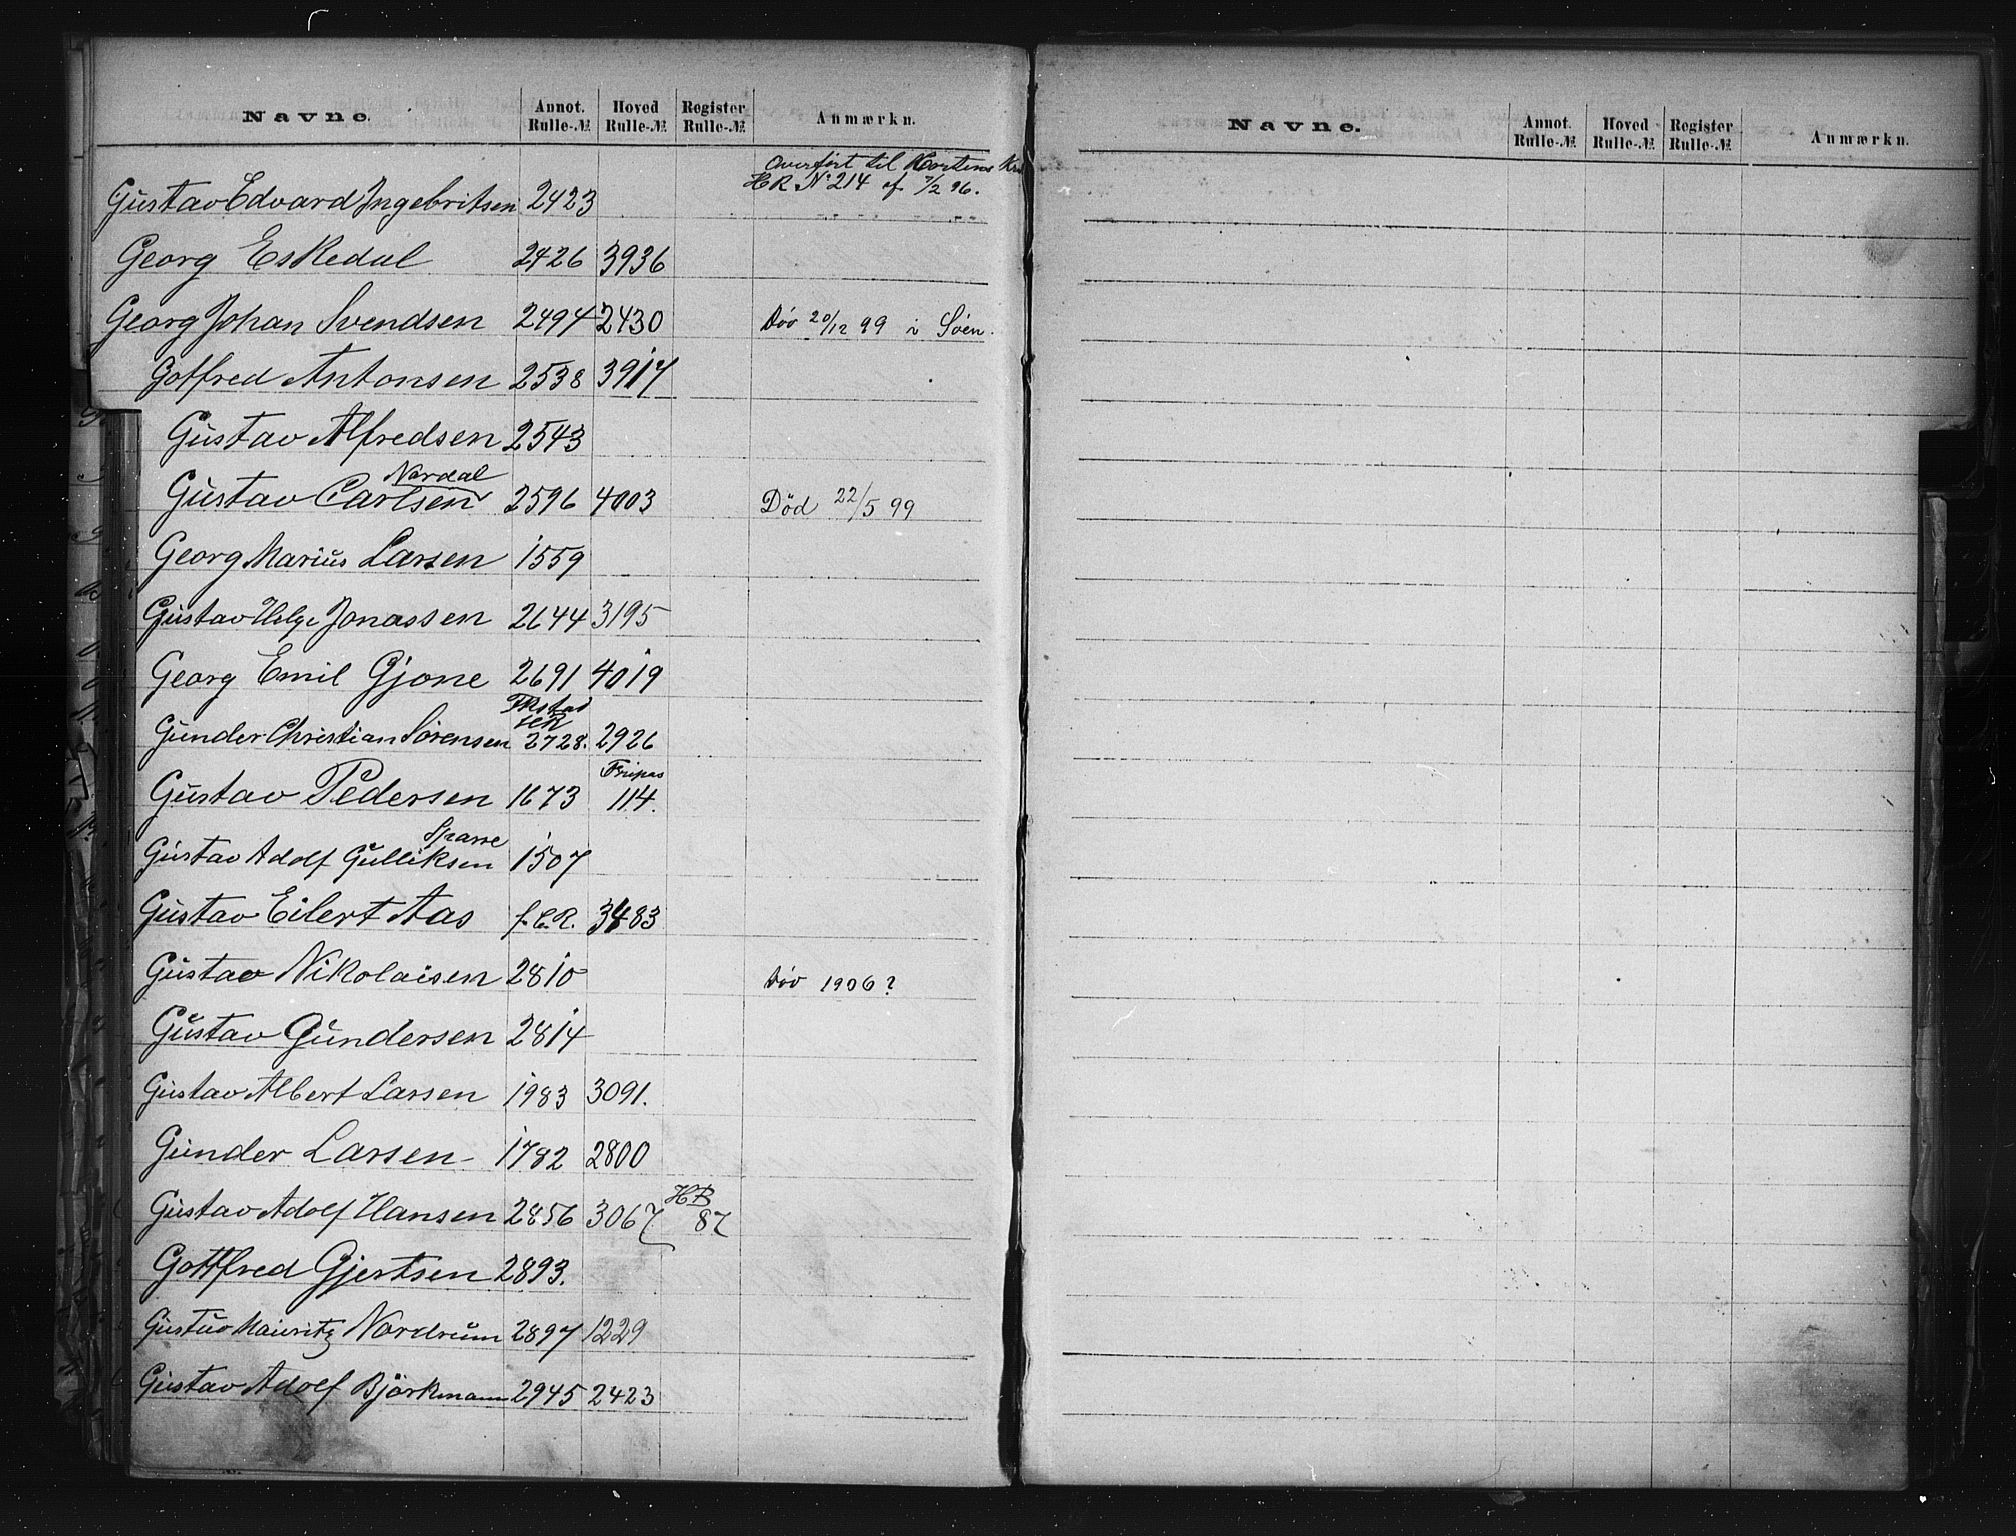 Navne. Annot. Rulle-№ Hoved Rulle-№ Register Rulle-№ Anmærkn.
overført til Hortens
Gustav Edvard Ingebritsen 2423 HR N° 214 af 7/2 96.
Georg Eskedal 2426 3936
Georg Johan Svendsen 2494 2430 Død 20/12 99 i Søen.
Gotfred Antonsen 2538 3917
Gustav Alfredsen 2543
Nordal
Gustav Carlsen 2596 4003 Død 22/5 99
Georg Marius Larsen 1559
Gustav Helge Jonassen 2644 3195
Georg Emil Gjone 2691 4019
Fkstad
Gunder Christian Sørensen 2728. 2926
Fripas
Gustav Pedersen 1673 114.
Sparre
Gustav Adolf Gulliksen 1507
Gustav Eilert Aas f.C.R. 3483
Gustav Nikolaisen 2810 Død 1906?
Gustav Gundersen 2814
Gustav Albert Larsen 1983 3091.
Gunder Larsen 1782 2800
HR
Gustav Adolf Hansen 2856 3067 87
Gottfred Gjertsen 2893.
Gustav Mauritz Nordrum 2897 1229
Gustav Adolf Bjørkmann 2945 2423
Navne. Annot. Rulle-№ Hoved Rulle-№ Register Rulle-№ Anmærkn.